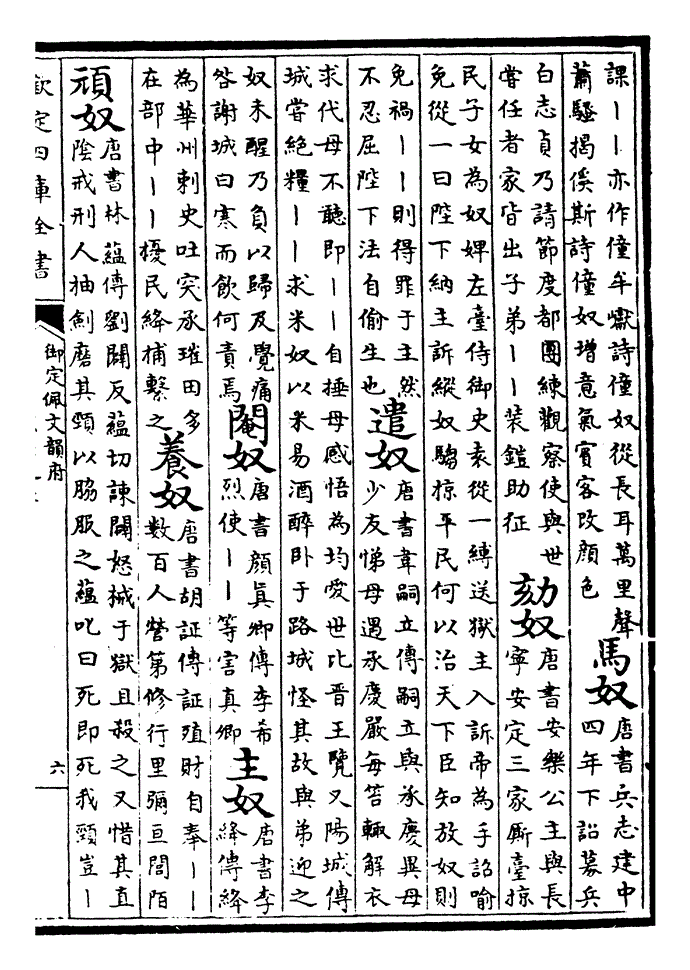 課丨丨亦作僮牟巘詩僮奴從長耳萬里聲
蕭騷揭傒斯詩僮奴增意氣賓客改顏色
馬奴
唐書兵志建中
四年下詔募兵
白志貞乃請節度都團練觀察使與世
嘗任者家皆出子弟丨丨装鎧助征
劾奴
唐書安樂公主與長
寧安定三家厮臺掠
民子女為奴婢左臺侍御史袁從一縛送獄主入訴帝為手詔喻
免從一曰陛下納主訴縱奴騶掠平民何以治天下臣知放奴則
免禍丨丨則得罪于主然
不忍屈陛下法自偷生也
遣奴
唐書韋嗣立傳嗣立與承慶異母
少友悌母遇承慶嚴每笞輒解衣
求代母不聽即丨丨自捶母感悟為均愛世比晋王覽又陽城傳
城嘗絶糧丨丨求米奴以米易酒醉卧于路城怪其故與弟迎之
奴未醒乃負以歸及覺痛
咎謝城曰寒而飲何責焉
閹奴
唐書顔真卿傳李希
烈使丨丨等害真卿
主奴
唐書李
絳傳絳
為華州刺史吐突承璀田多
在部中丨丨擾民絳捕繫之
養奴
唐書胡証傳証殖財自奉丨丨
數百人營第修行里彌亘閭陌
頑奴
唐書林藴傳劉闢反藴切諫闢怒械于獄且殺之又惜其直
陰戒刑人抽劍磨其頸以脇服之藴叱曰死即死我頸豈丨
欽定四庫全書
御定佩文韻府
六